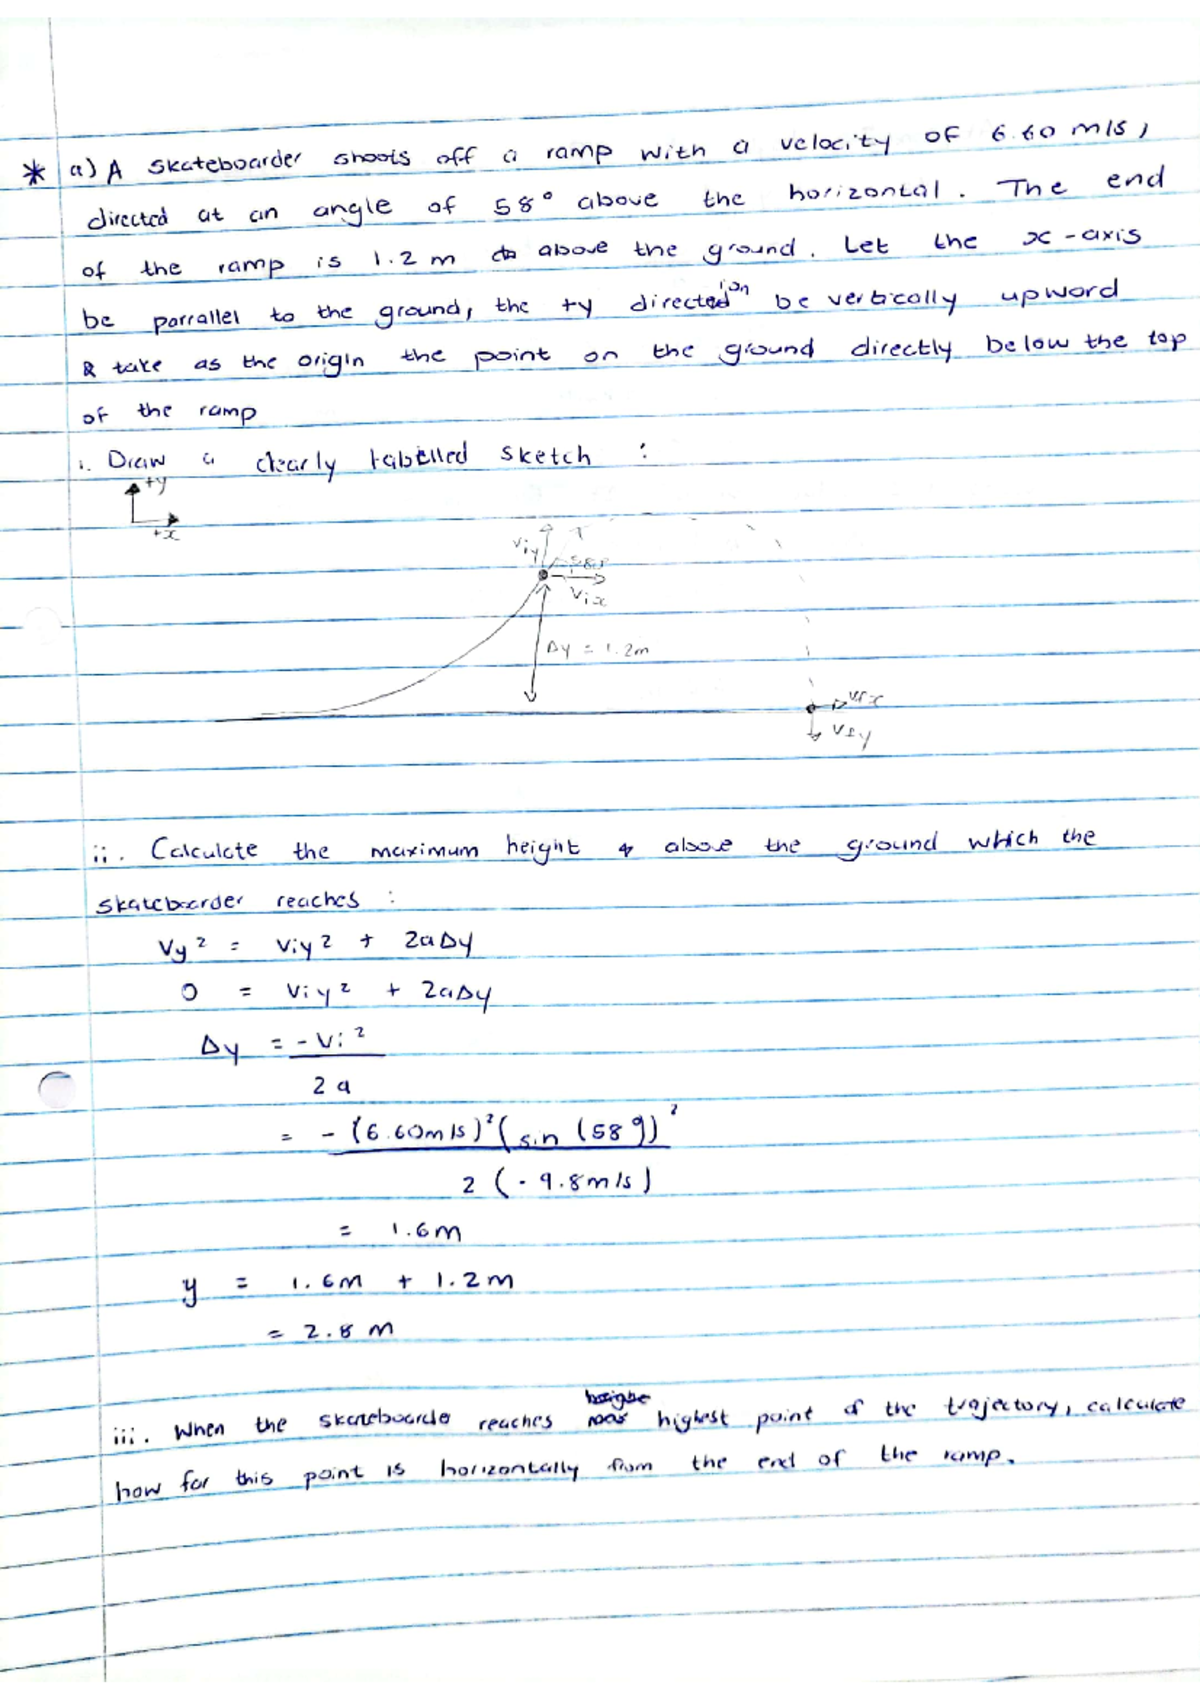 * a) A skateboarder shoots off a ramp with a velocity of 6.60 m/s,
directed at an angle of 58° above the horizontal. The end
of the ramp is 1.2 m above the ground. Let the x-axis
be parrallel to the ground, the +y direction be vertically upword
& take as the origin the point on the ground directly below the top
of the ramp
i. Draw a clearly labelled sketch :
+y
+x
Viy 58°
Vix
Δy = 1.2m
Vfx
Vfy
ii. Calculate the maximum height above the ground which the
skateboarder reaches :
Vy² = Viy² + 2aΔy
0 = Viy² + 2aΔy
Δy = -Vi²
2a
= - (6.60m/s)² (sin (58°))²
2 (-9.8m/s)
= 1.6m
y = 1.6m + 1.2m
= 2.8 m
iii. When the skateboarder reaches highest point of the trajectory, calculate
how far this point is horizontally from the end of the ramp.